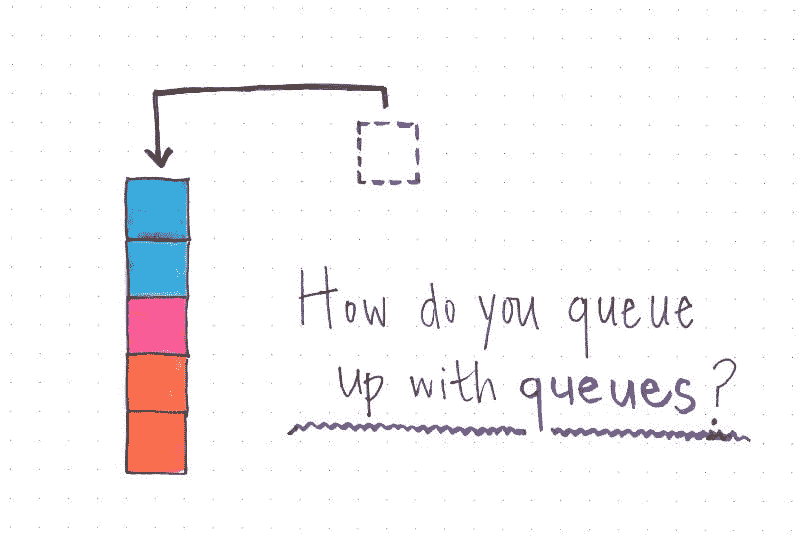 How do you queue
up with queues?